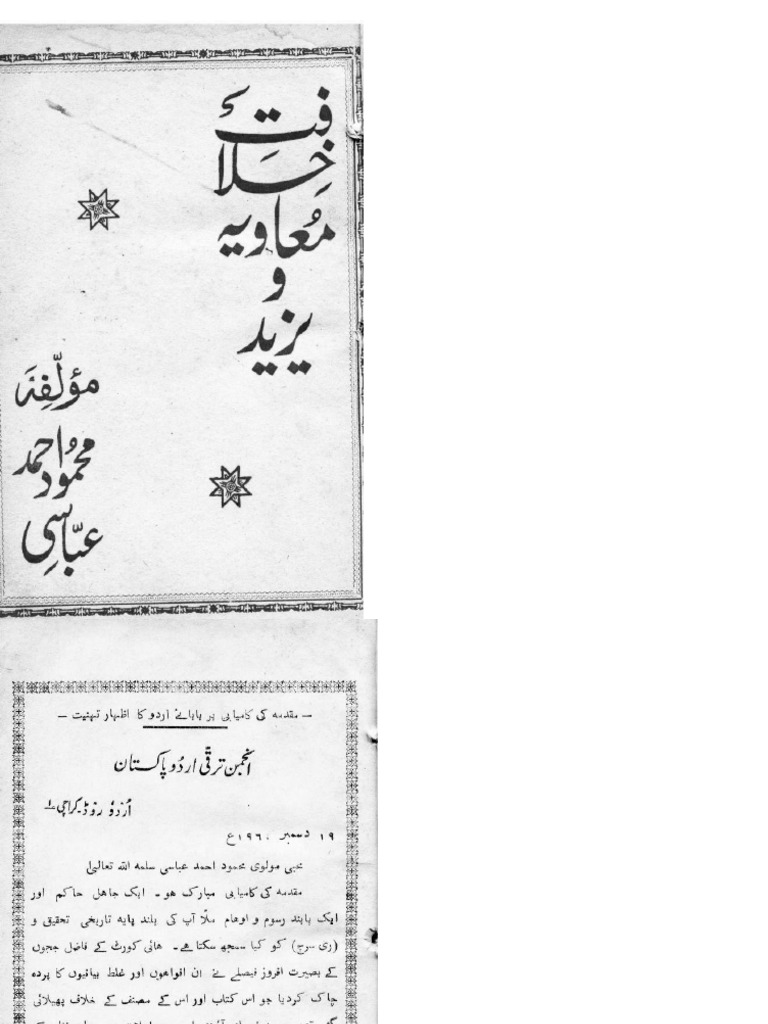 خلافتِ
معاویہ
و
یزید
مؤلفہ
محمود احمد
عباسی
— مقدمہ کی کامیابی پر بابائے اردو کا اظہار تہنیت —
انجمن ترقی اردو پاکستان
اُردو روڈ۔ کراچی ۱
۱۹ دسمبر ۱۹۶۰ع
محبی مولوی محمود احمد عباسی سلمہ اللہ تعالیٰ
مقدمہ کی کامیابی مبارک ہو۔ ایک جاہل حاکم اور
ایک پابند رسوم و اوهام ملّا آپ کی بلند پایہ تاریخی تحقیق و
(ری سرچ) کو کیا سمجھ سکتا ہے۔ ہائی کورٹ کے فاضل ججوں
کے بصیرت افروز فیصلے نے ان افواہوں اور غلط بیانیوں کا پردہ
چاک کردیا جو اس کتاب اور اس کے مصنف کے خلاف پھیلائی